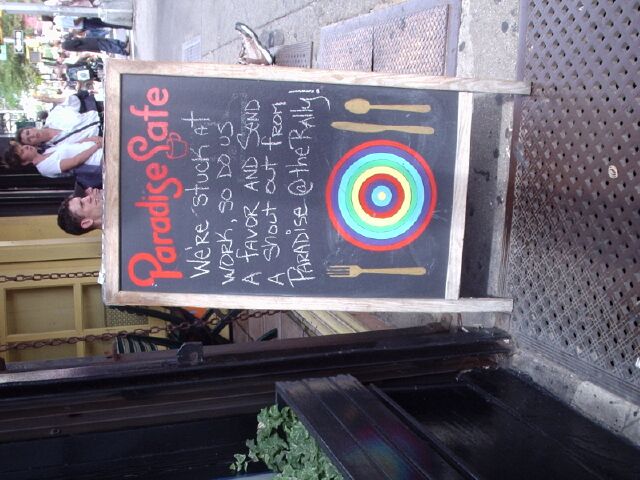 Paradise Cafe
We're stuck at
work, so do us
A favor AND SAND
A shout out from
PARADISE @ the Rally!